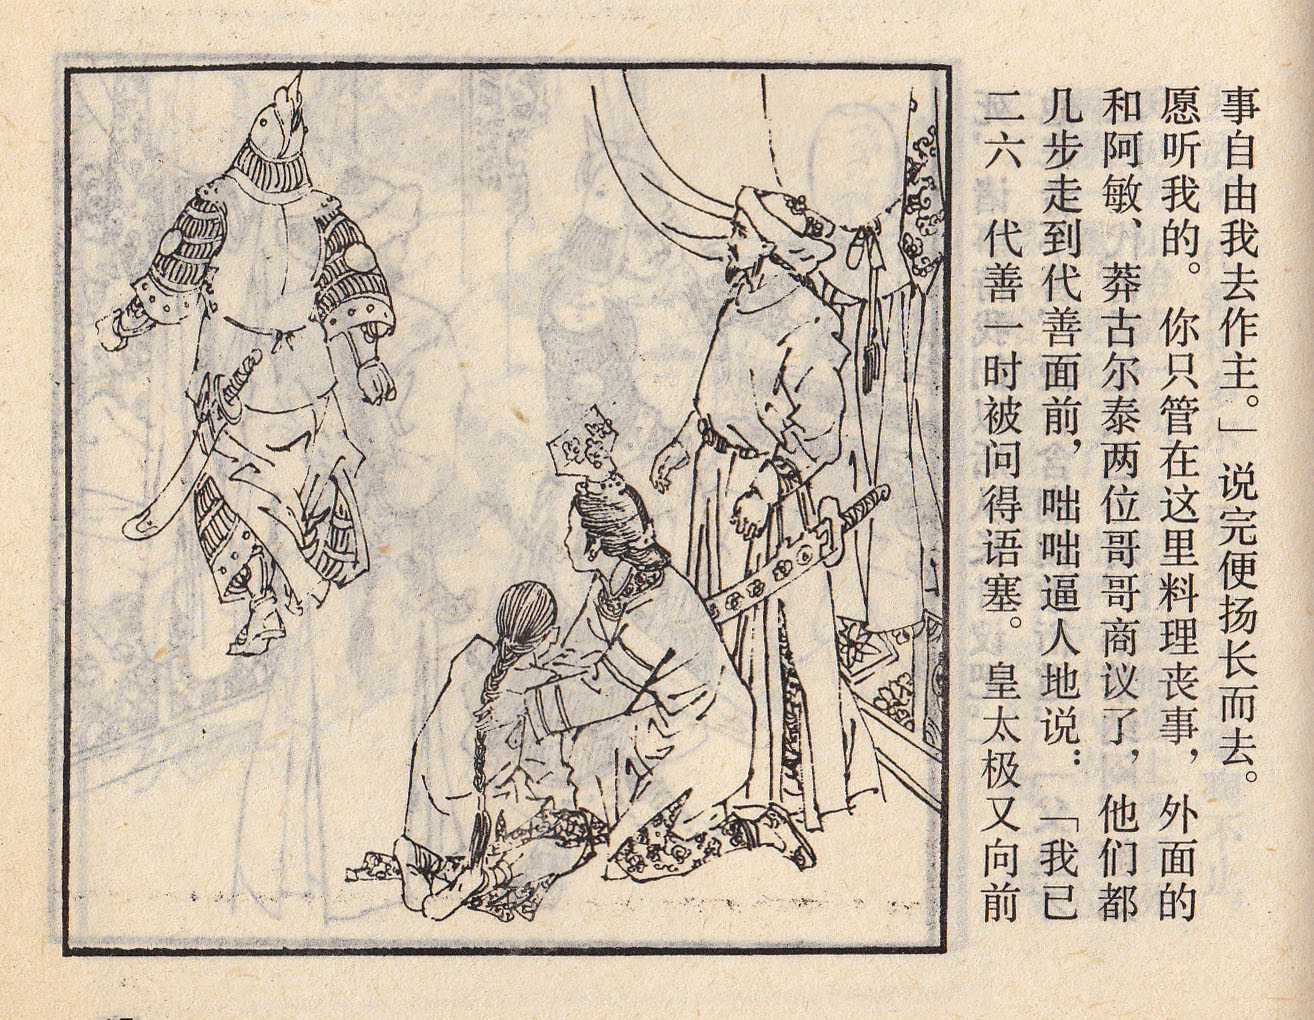 二六　代善一时被问得语塞。皇太极又向前
几步走到代善面前，咄咄逼人地说：「我已
和阿敏、莽古尔泰两位哥哥商议了，他们都
愿听我的。你只管在这里料理丧事，外面的
事自由我去作主。」说完便扬长而去。